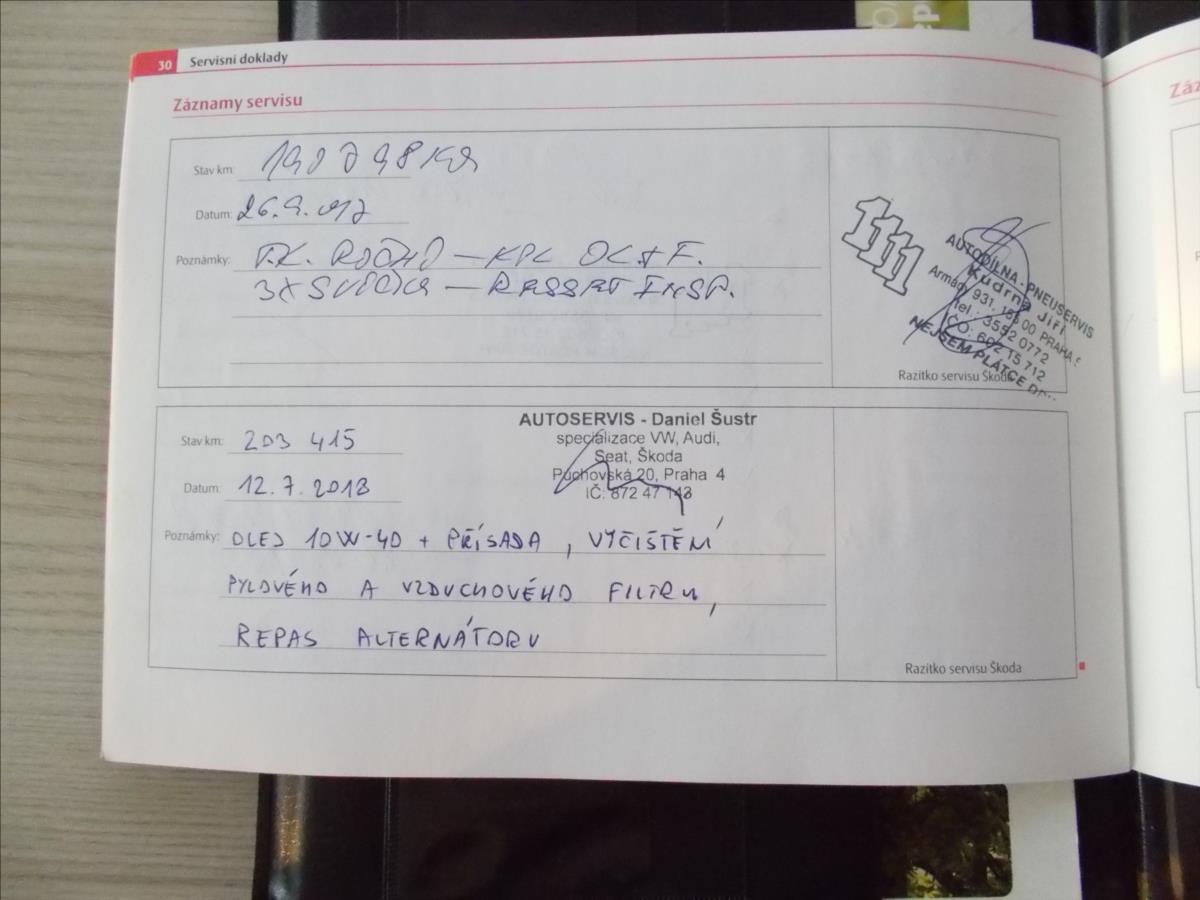 30 Servisní doklady
Záznamy servisu
Stav km: 190 798 KM
Datum: 26.9.017
Poznámky: T.K. ROČNÍ — KPL OL + F.
3X SVÍČKA — RESSET INSP.
1111
AUTODÍLNA - PNEUSERVIS
Kudrna Jiří
Armády 931, 155 00 PRAHA 5
tel.: 3552 0772
IČO: 602 15 712
NEJSEM PLÁTCE
Razítko servisu Škoda
Stav km: 203 415
Datum: 12.7.2018
AUTOSERVIS - Daniel Šustr
specializace VW, Audi,
Seat, Škoda
Púchovská 20, Praha 4
IČ: 872 47 143
Poznámky: OLEJ 10W-40 + PŘÍSADA, VYČIŠTĚNÍ
PYLOVÉHO A VZDUCHOVÉHO FILTRU,
REPAS ALTERNÁTORU
Razítko servisu Škoda